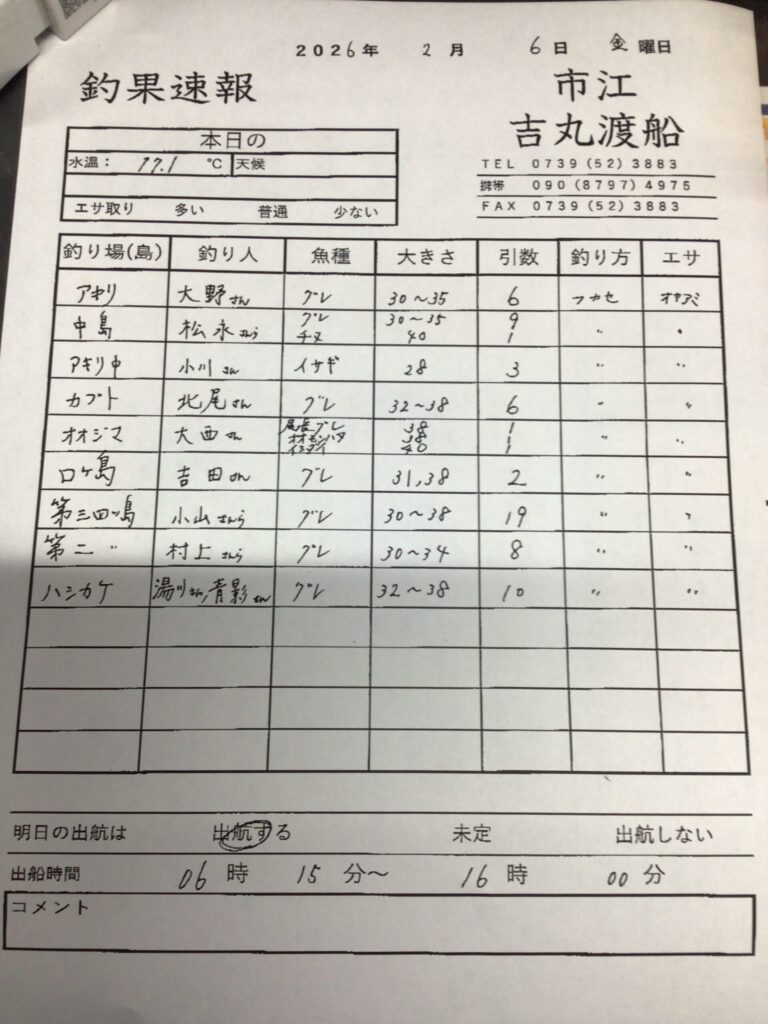 2026年 2月 6日 金曜日
釣果速報
市江
吉丸渡船
TEL 0739(52)3883
携帯 090(8797)4975
FAX 0739(52)3883
本日の
水温: 17.1 ℃ 天候
エサ取り 多い 普通 少ない
釣り場(島) 釣り人 魚種 大きさ 引数 釣り方 エサ
アキリ 大野さん グレ 30～35 6 フカセ オキアミ
中島 松永さんら グレ 30～35 9 〃 〃
チヌ 40 1
アキリ中 小川さん イサギ 28 3 〃 〃
カブト 北尾さん グレ 32～38 6 〃 〃
オオジマ 大西さん 尾長グレ 38 1 〃 〃
オオモンハタ 38 1
イシダイ 40 1
ロケ島 吉田さん グレ 31,38 2 〃 〃
第三四ツ島 小山さんら グレ 30～38 19 〃 〃
第二 〃 村上さんら グレ 30～34 8 〃 〃
ハシカケ 湯川さん,青影さん グレ 32～38 10 〃 〃
明日の出航は 出航する 未定 出航しない
出船時間 06時 15分～ 16時 00分
コメント